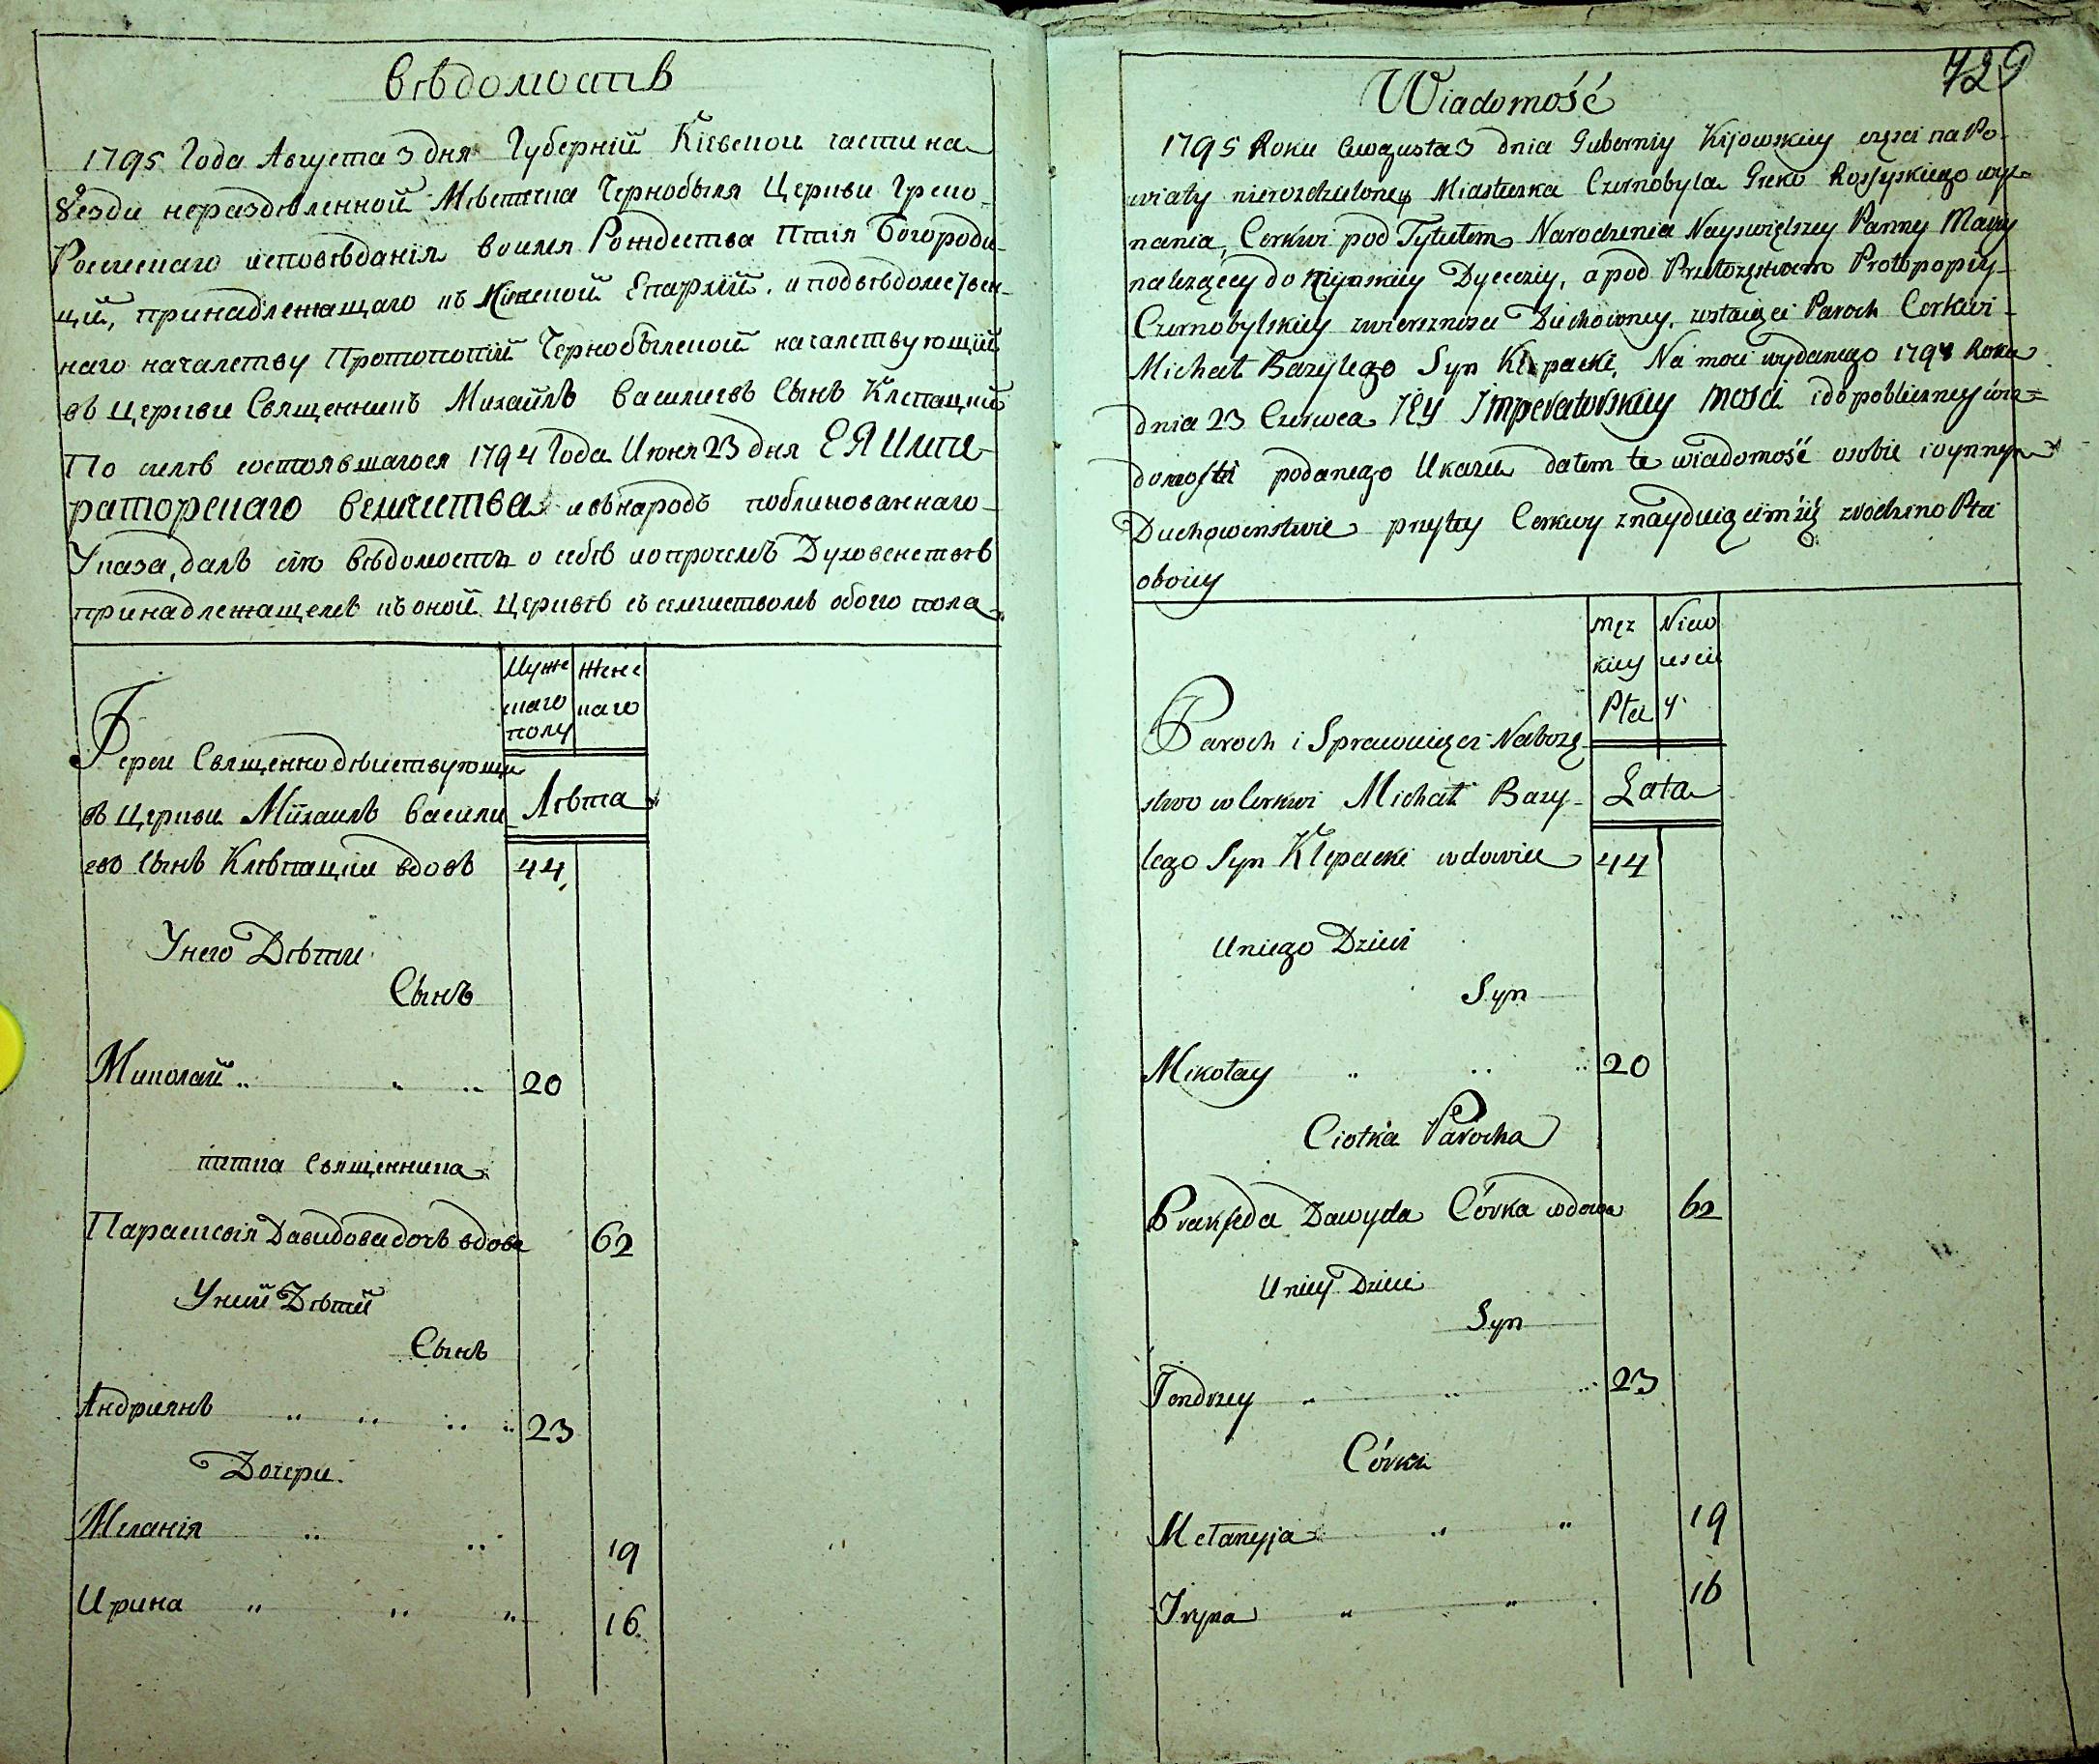 Вѣдомость
1795 Года Августа 3 дня Губерніи Кіевской части на
уезди нераздѣленной Мѣстечка Чернобыля Церкви Греко-
Россискаго исповѣданія воимя Рождества Птія Богороди-
ци, принадлежащаго къ Кіевской Епархіи, и подвѣдомствен-
наго началству Протопопіи Чернобылской началствующій
въ Церкви Священникъ Михайлъ Василиевъ Сынъ Клепацкий
По силѣ состоявшагося 1794 Года Июня 23 дня ЕЯ Импе-
раторскаго величества и въ народъ публикованнаго
Указа, далъ сію вѣдомость о себѣ и о прочемъ Духовенствѣ
принадлежащемъ къ оной Церквѣ съ семействомъ обого пола
Муже
скаго
полу
Женс
каго
Іерей Священнодѣйствующи
въ Церкви Михаилъ васили
Лѣта
евъ Сынъ Клѣпацкій вдовъ 44
Унего Дѣти
Сынъ
Миколай 20
тітка Священника
Парасковія Давидова дочь вдова 62
Уней Дѣтій
Сынъ
Андриянъ 23
Дочери
Меланія 19
Ирина 16
729
Wiadomość
1795 Roku Awgusta 3 dnia Guberniy Kijowskiey części na Po-
wiaty nierozdzieloney Miasteczka Czernobyla Greko Rossyskiego wyz-
nania, Cerkwi pod Tytułem Narodzenia Nayswiętszey Panny Maryi
należącey do Kijowskiey Dyeceziy, a pod Protopopiy
Czernobylskiey zwierzchność Duchowney, zostaiący Paroch Cerkwi
Michał Bazylego Syn Klepacki, Na moci wydanego 1794 Roku
dnia 23 Czerwca JEy Imperatorskiey Mości i do publiczney wia-
domości podanego Ukazu dałem te wiadomość osobie i o ynnym
Duchowenstwie przytey Cerkwy znayduiącimsię zrodzino Płci
oboiey
męz
kiey
Płci
Niew
iesci
y
Paroch i Sprawuiący Naboże
stwo w Cerkwi Michał Bazy-
Lata
lego Syn Klepacki wdowiec 44
Uniego Dzieci
Syn
Mikołay 20
Ciotka Parocha
Prakseda Dawyda Córka wdowa 62
Uniey Dzieci
Syn
Jendrzey 23
Córki
Mełanyja 19
Iryna 16